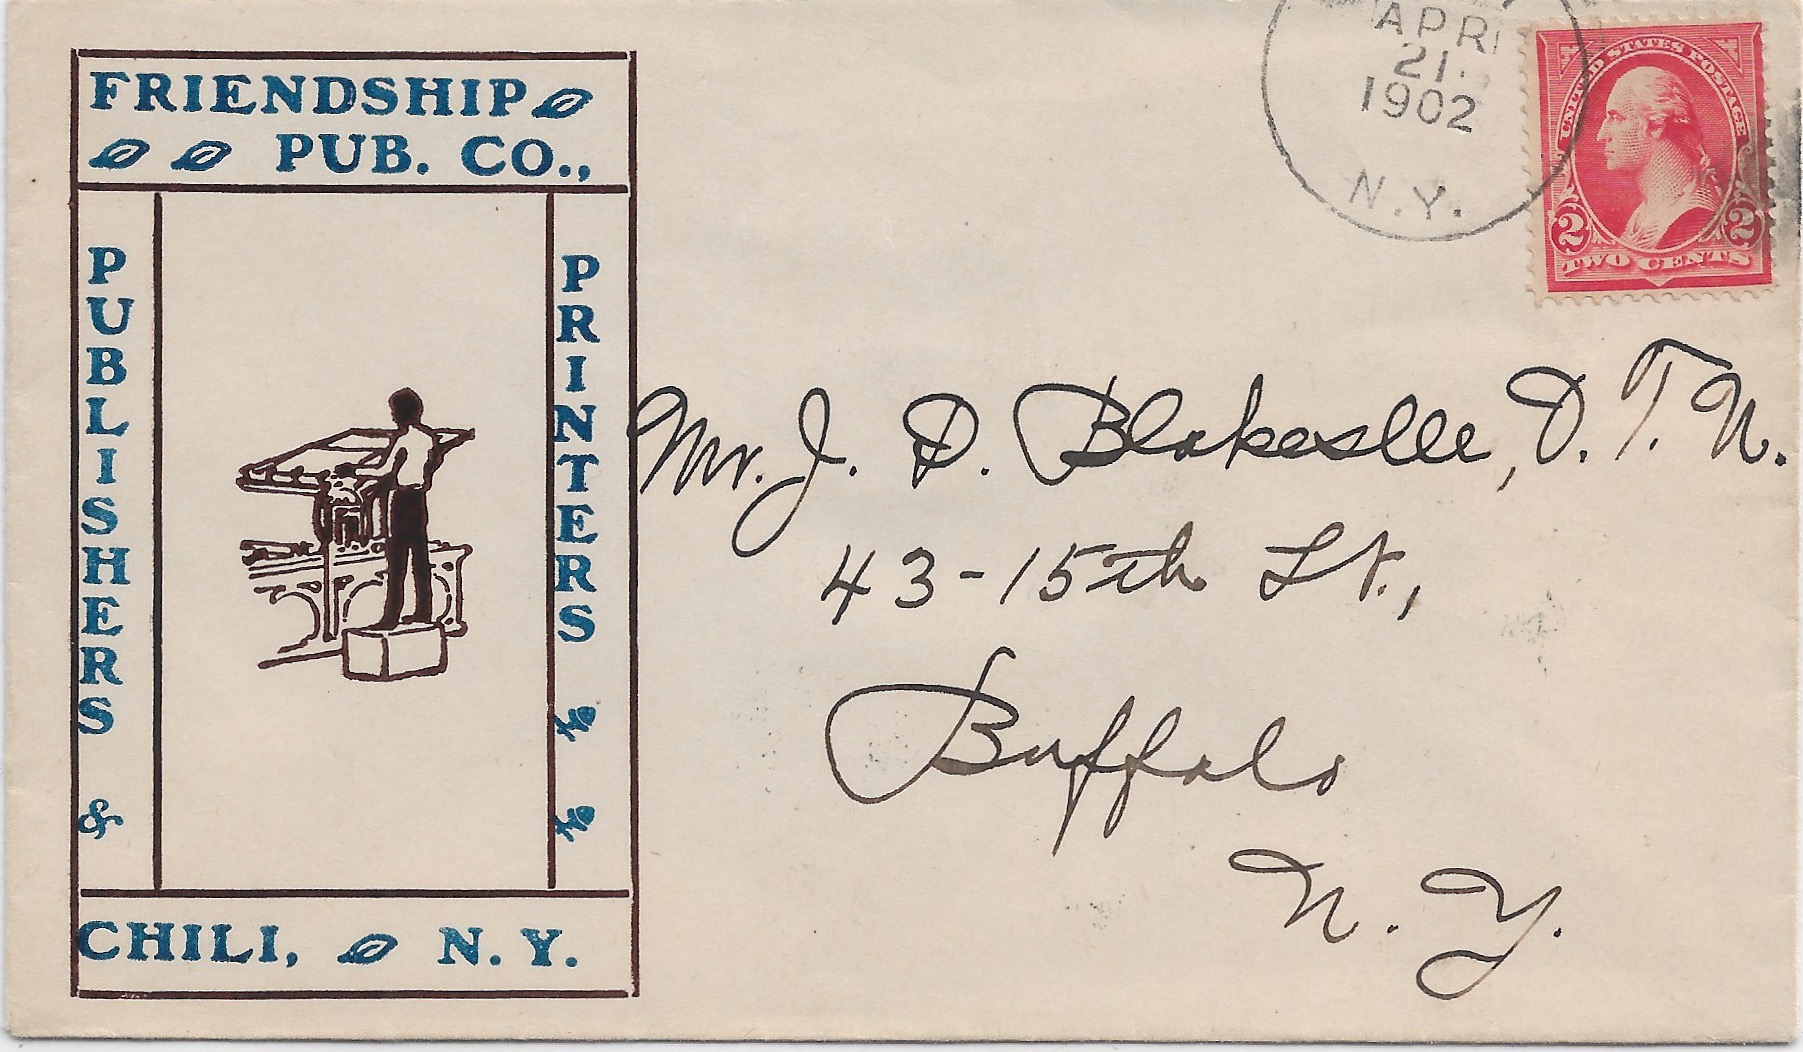 FRIENDSHIP
PUB. CO.,
PUBLISHERS &
PRINTERS
CHILI, N. Y.
APR
21.
1902
N.Y.
UNITED STATES POSTAGE
2 2
TWO CENTS
Mr. J. D. Blakeslee, D. T. N.
43-15th St.,
Buffalo
N. Y.